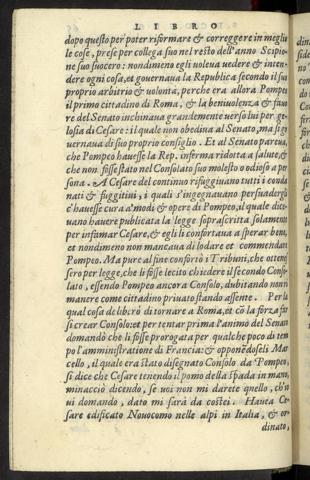 LIBRO
dopo questo per poter riformare & correggere in meglio
le cose, prese per collega suo nel resto dell'anno Scipio-
ne suo suocero: nondimeno egli voleua uedere & inten-
dere ogni cosa, et gouernaua la Republica secondo il suo
proprio arbitrio & uolontà, perche era allora Pompeo
il primo cittadino di Roma, & la beniuolenza & fauo
re del Senato inchinaua grandemente verso lui per ge-
losia di Cesare: il quale non obediua al Senato, ma si go
uernaua di suo proprio consiglio. Et al Senato pareua,
che Pompeo hauesse la Rep. inferma ridotta a salute, &
che non fosse stato nel Consolato suo molesto o odioso a per
sona. A Cesare del continuo rifuggiuano tutti i conda
nati & fuggitini, i quali s'ingegnauano persuadergli
c'hauesse cura a' modi & opere di Pompeo, il quale dice
uano hauere publicata la legge soprascritta solamente
per infamar Cesare, et egli li confortaua a sperar bene,
et nondimeno non mancaua di lodare et commendare
Pompeo. Ma pure al fine confortò i Tribuni, che otten
sero per legge, che li fosse lecito chiedere il secondo Conso
lato, essendo Pompeo ancora Consolo, dubitando non ri
manere come cittadino priuato stando assente. Per la
qual cosa deliberò di tornare a Roma, et cō la forza far
si crear Consolo: et per tentar prima l'animo del Senato
domandò che li fosse prorogata per qualche poco di tem
po l'amministratione di Francia: & opponēdoseli Mar
cello, il quale era stato disegnato Consolo da Pompeo,
si dice che Cesare tenendo il pomo della spada in mano,
minacciò dicendo, se uoi non mi darete quello, ch'io
ui domando, dato mi sarà da costei. Hauea Ce-
sare edificato Nouocomo nelle alpi in Italia, & or
dinato,